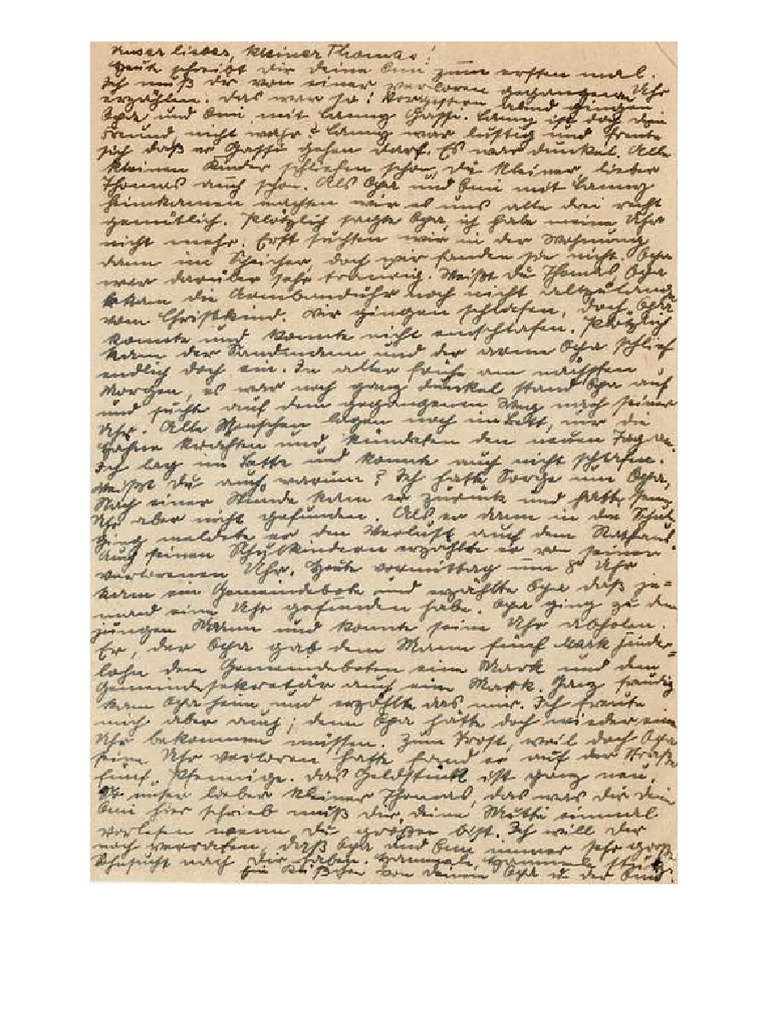 Unser lieber, kleiner Thomas!
Heute schreibt dir deine Omi zum ersten mal.
Ich muß dir von einer verloren gegangenen Uhr
erzählen. Das war so: Vorgestern abend gingen
Opa und Omi mit Lanny Gassi. Lanny ist doch dein
Freund nicht wahr? Lanny war lustig und freute
sich daß er Gassi gehen darf. Es war dunkel. Alle
kleinen Kinder schliefen schon, du kleiner lieber
Thomas auch schon. Als Opa und Omi mit Lanny
heimkamen machten wir es uns alle drei recht
gemütlich. Plötzlich sagte Opa ich habe meine Uhr
nicht mehr. Erst suchten wir in der Wohnung
dann im Speicher, doch wir fanden sie nicht. Opa
war darüber sehr traurig. Weißt du Thomas Opa
bekam die Armbanduhr noch nicht allzulang
vom Christkind. Wir gingen schlafen, doch Opa
konnte und konnte nicht einschlafen. Plötzlich
kam der Sandmann und der arme Opa schlief
endlich doch ein. In aller Frühe am nächsten
Morgen, es war noch ganz dunkel stand Opa auf
und suchte auf dem gegangenen Weg nach seiner
Uhr. Alle Menschen lagen noch im Bett, nur die
Hähne krähten und kündeten den neuen Tag an.
Ich lag im Bette und konnte auch nicht schlafen.
Weißt du auch warum? Ich hatte Sorge um Opa.
Nach einer Stunde kam er zurück und hatte seine
Uhr aber nicht gefunden. Als er dann in die Schule
ging meldete er den Verlust auf dem Rathaus.
Auch seinen Schulkindern erzählte er von seiner
verlorenen Uhr. Heute vormittag um 8 Uhr
kam ein Gemeindebote und erzählte Opa daß je-
mand eine Uhr gefunden habe. Opa ging zu dem
jungen Mann und konnte seine Uhr abholen.
Er, der Opa gab dem Mann fünf Mark Finder-
lohn dem Gemeindeboten eine Mark und dem
Gemeindesekretär auch eine Mark. Ganz freudig
kam Opa heim und erzählte das mir. Ich freute
mich aber auch; denn Opa hätte doch wieder eine
Uhr bekommen müssen. Zum Trost, weil doch Opa
seine Uhr verloren hatte fand er auf der Straße
fünf Pfennige. Das Geldstück ist ganz neu.
So unser lieber kleiner Thomas, das was dir dein
Omi hier schrieb muß dir deine Mutti einmal
vorlesen wenn du größer bist. Ich will dir
noch verraten, daß Opa und Omi immer sehr große
Sehnsucht nach Dir haben.
Ein Küßchen von deinem Opa u. der Omi.